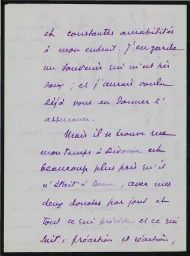 et constantes amabilités
à mon endroit. J'en garde
un souvenir qui m'est très
doux ; et j'aurais voulu
déjà vous en donner l'
assurance.
Mais il se trouve que
mon temps à Divonne est
beaucoup plus pris qu'il
n'était à Berne, avec mes
deux douches par jour et
tout ce qui précède et ce qui
suit, préaction et réaction,